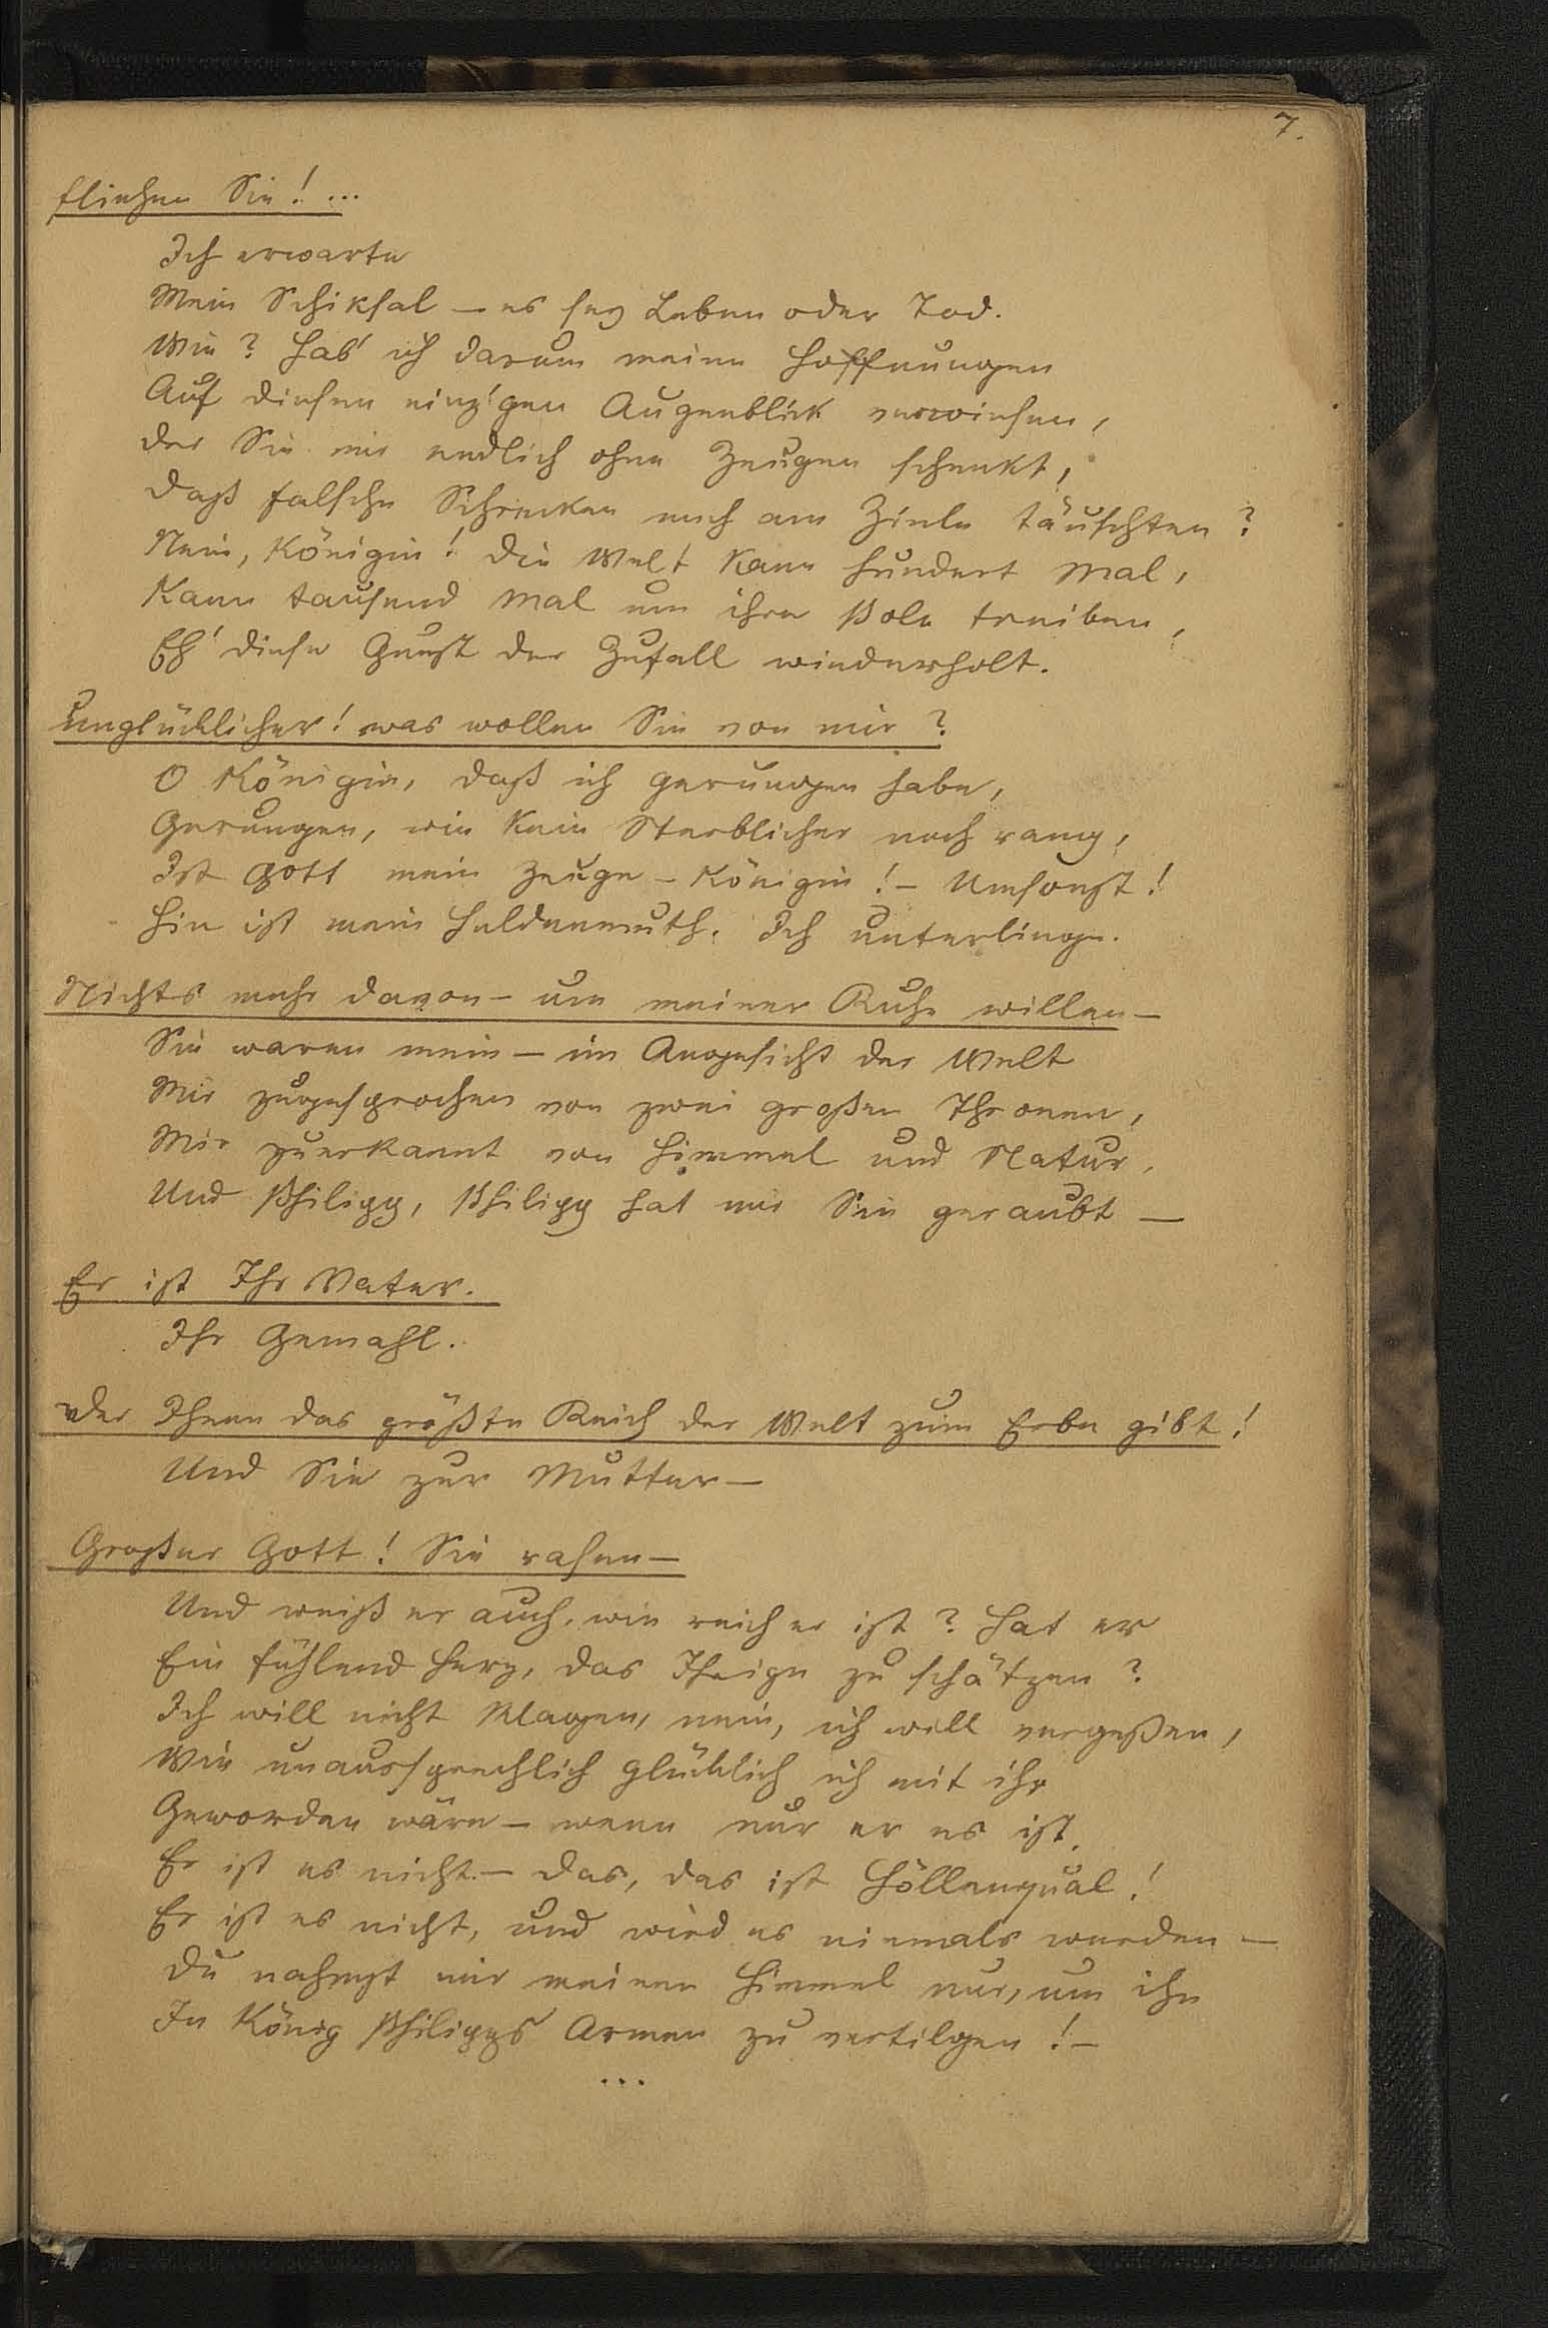 7.
fliehen Sie! ...
Ich erwarte
Mein Schiksal — es sey Leben oder Tod.
Wie? Hab' ich darum meine Hoffnungen
Auf diesen einz'gen Augenblick verwiesen,
Der Sie mir endlich ohne Zeugen schenkt,
Daß falsche Schrecken mich am Ziele täuschten?
Nein, Königin! Die Welt kann hundert Mal,
Kann tausend Mal um ihre Pole treiben,
Eh' diese Gunst der Zufall wiederholt.
Unglücklicher! was wollen Sie von mir?
O Königin, daß ich gerungen habe,
Gerungen, wie kein Sterblicher noch rang,
Ist Gott mein Zeuge – Königin! – Umsonst!
Hin ist mein Heldenmuth. Ich unterliege.
Nichts mehr davon – um meiner Ruhe willen –
Sie waren mein – im Angesicht der Welt
Mir zugesprochen von zwei großen Thronen,
Mir zuerkannt von Himmel und Natur,
Und Philipp, Philipp hat mir Sie geraubt —
Er ist Ihr Vater.
Ihr Gemahl.
Der Ihnen das größte Reich der Welt zum Erbe gibt!
Und Sie zur Mutter —
Großer Gott! Sie rasen —
Und weiß er auch, wie reich er ist? Hat er
Ein fühlend Herz, das Ihrige zu schätzen?
Ich will nicht klagen, nein, ich will vergeßen,
Wie unaussprechlich glücklich ich mit ihr
Geworden wäre – wenn nur er es ist.
Er ist es nicht. – Das, das ist Höllenqual!
Er ist es nicht, und wird es niemals werden —
Du nahmst mir meinen Himmel nur, um ihn
In König Philipps Armen zu vertilgen! –
...